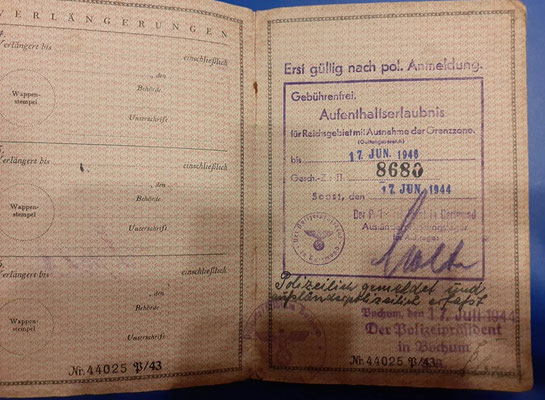 VERLÄNGERUNGEN
Verlängert bis
einschließlich
, den
Behörde
Wappen-
stempel
Unterschrift
Verlängert bis
einschließlich
, den
Behörde
Wappen-
stempel
Unterschrift
Verlängert bis
einschließlich
, den
Behörde
Wappen-
stempel
Unterschrift
Nr. 44025 P/43
Erst gültig nach pol. Anmeldung.
Gebührenfrei.
Aufenthaltserlaubnis
für Reichsgebiet mit Ausnahme der Grenzzone.
(Geltungsbereich)
bis 17. JUN. 1946
Gesch.-Z.: II. 8680
Soest, den 17. JUN. 1944
Der in Dortmund
Polizeilich gemeldet und
ausländspolizeilich erfaßt
Bochum, den 17. Juli 1944
Der Polizeipräsident
in Bochum
Nr. 44025 P/43